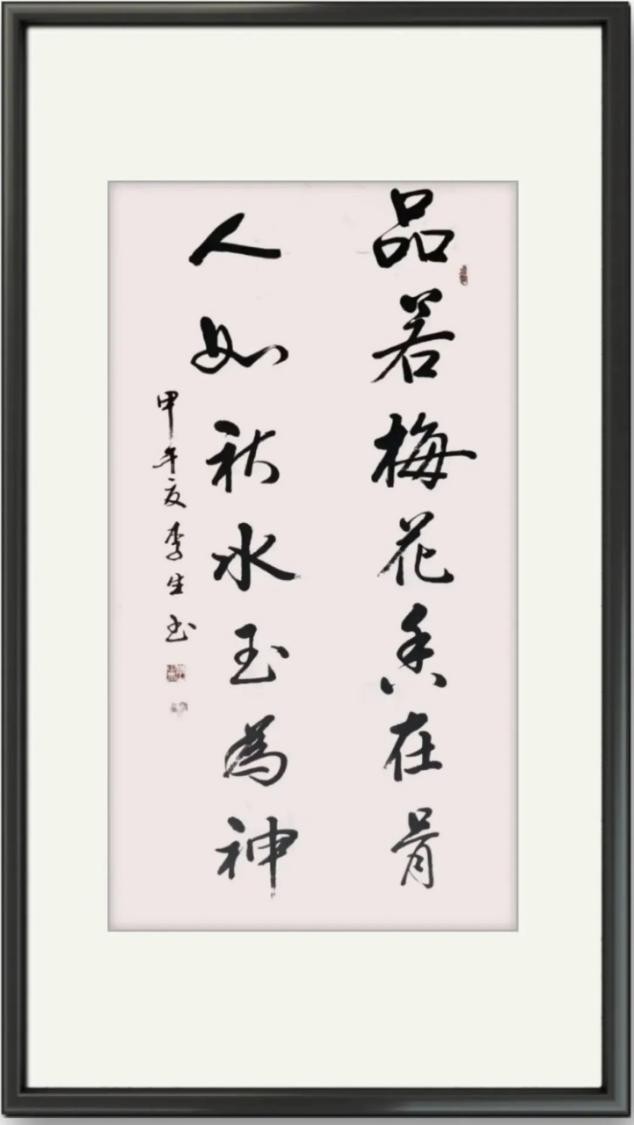 品若梅花香在骨
人如秋水玉為神
甲午夏李生书